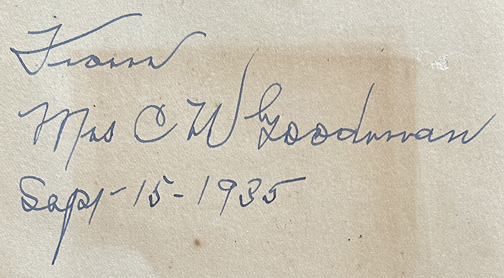 From
Mrs C W Goodman
Sept-15-1935